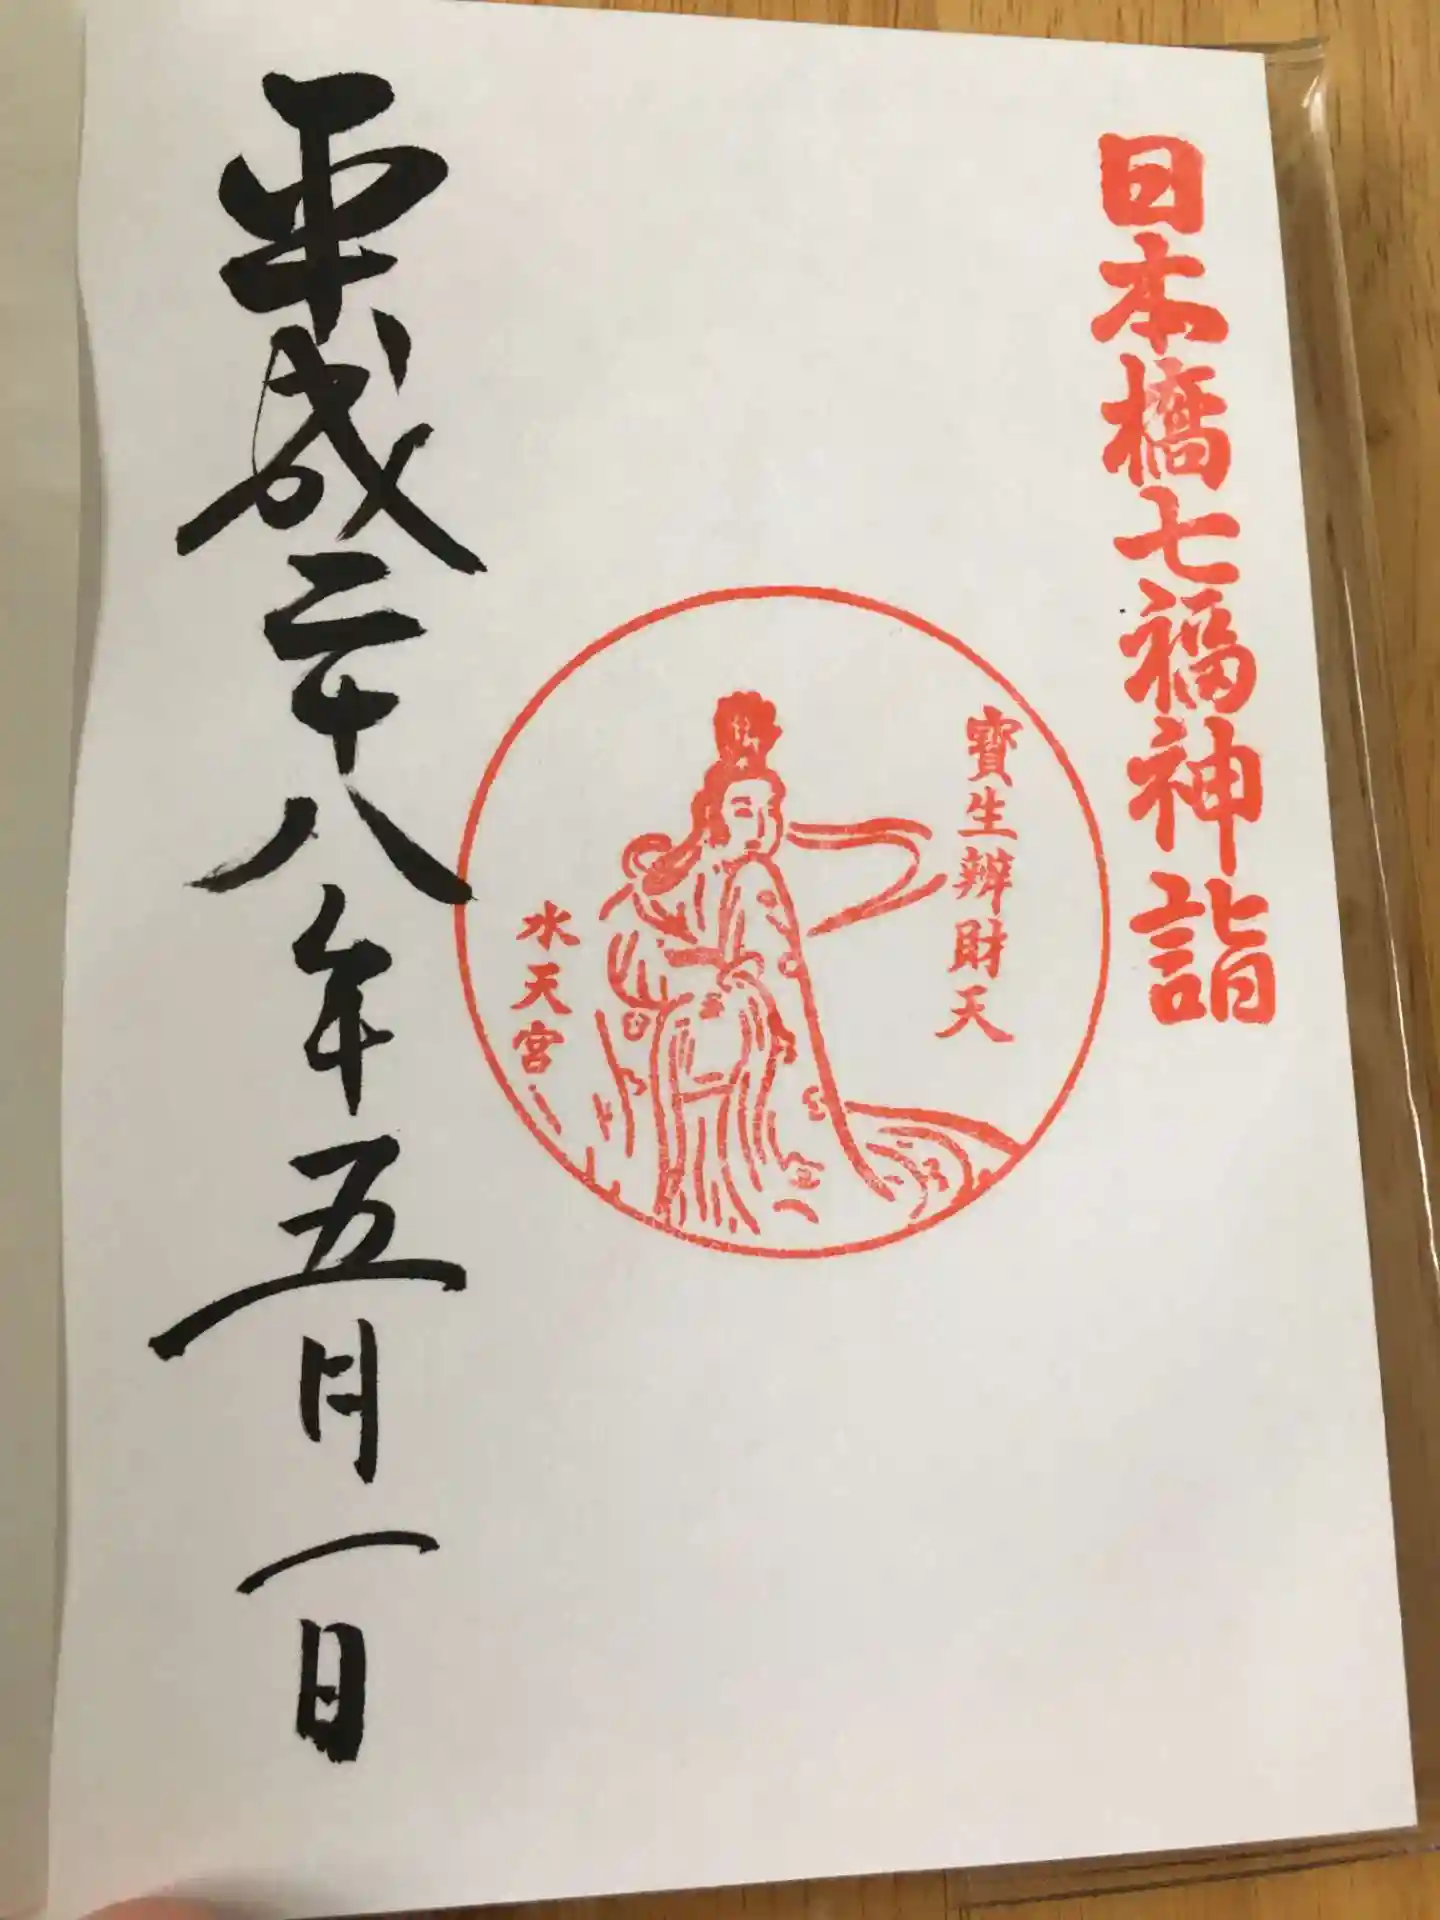 日本橋七福神詣
寶生辨財天
水天宮
平成二十八年五月一日